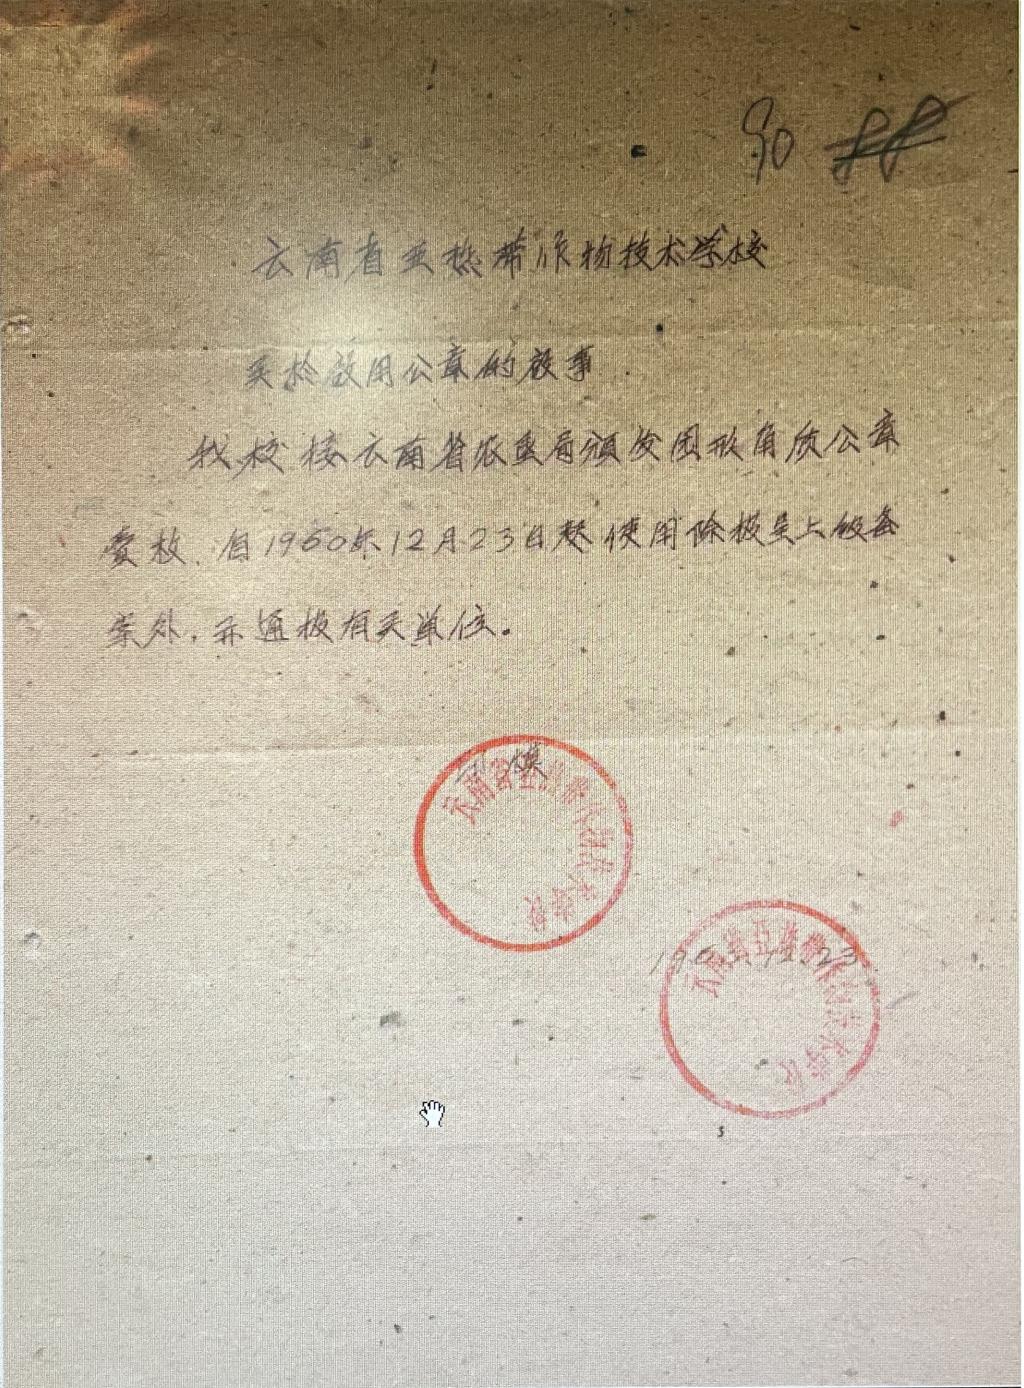 90
云南省亚热带作物技术学校
关于启用公章的启事
我校接云南省农垦局颁发圆形角质公章
壹枚,自1960年12月23日起使用除报呈上级备
案外,并通报有关单位。
云南省亚热带作物技术学校
云南省亚热带作物技术学校
23